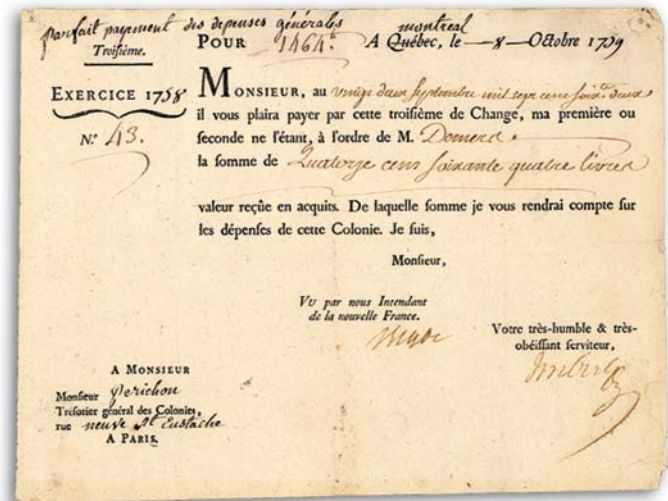 parfait payement des depenses générales
Troisiéme.
POUR 1464 ₶ A Québec, le — 8 — Octobre 1759
montreal
EXERCICE 1758
N.º 43.
MONSIEUR, au vingt deux Septembre mil sept cens soix.te deux
il vous plaira payer par cette troisiéme de Change, ma première ou
seconde ne l'étant, à l'ordre de M. Domerd
la somme de Quatorze cens soixante quatre livres
valeur reçûe en acquits. De laquelle somme je vous rendrai compte sur
les dépenses de cette Colonie. Je suis,
Monsieur,
VU par nous Intendant
de la nouvelle France.
Votre très-humble & très-
obéissant serviteur,
Imbert
A MONSIEUR
Monsieur Perichon
Trésorier général des Colonies,
rue neuve St Eustache
A PARIS.